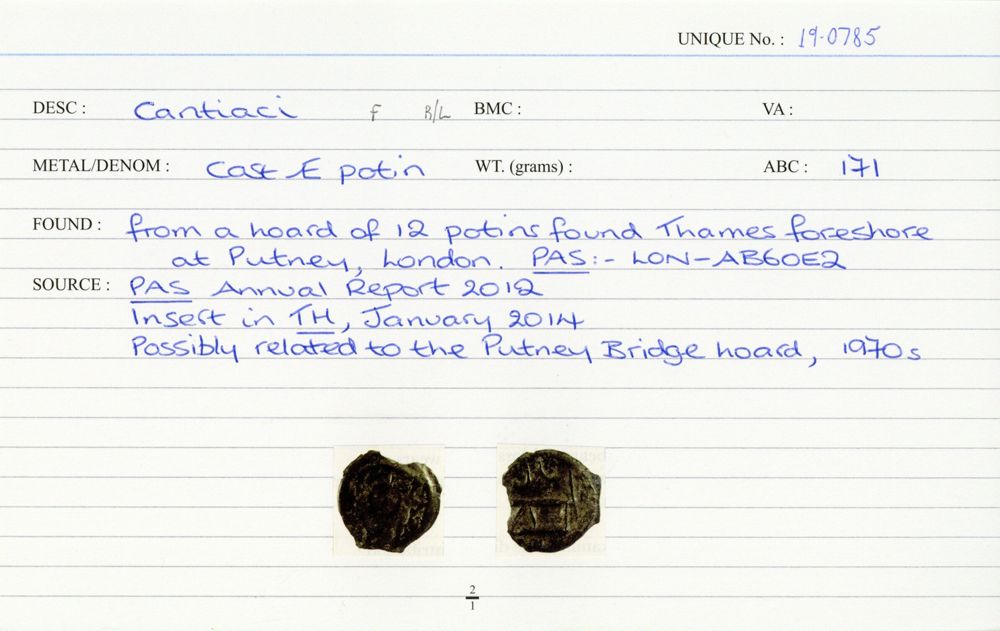 UNIQUE No. : 19·0785
DESC : Cantiaci F B/L BMC : VA :
METAL/DENOM : Cast Æ potin WT. (grams) : ABC : 171
FOUND : from a hoard of 12 potins found Thames foreshore
at Putney, London. PAS:- LON-AB60E2
SOURCE : PAS Annual Report 2012
Insert in TH, January 2014
Possibly related to the Putney Bridge hoard, 1970s
2
1